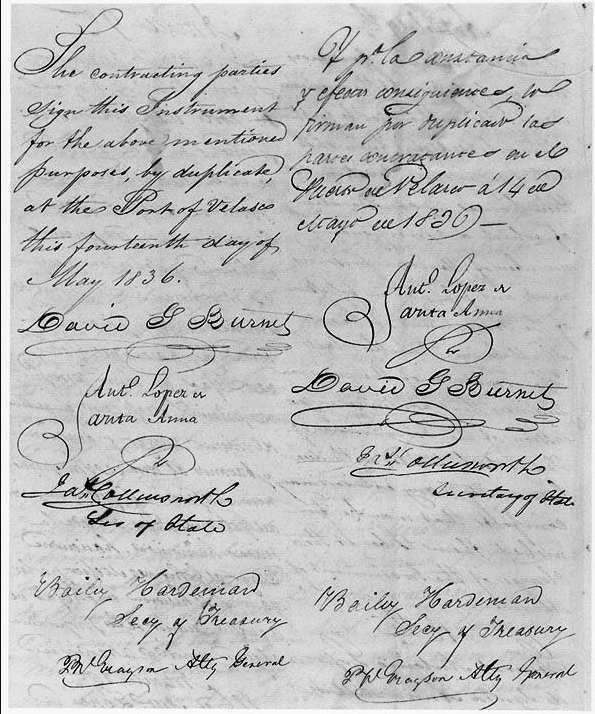 The contracting parties
sign this Instrument
for the above mentioned
purposes, by duplicate,
at the Port of Velasco
this fourteenth day of
May 1836.
David G Burnet
Ant.º Lopez de
Santa Anna
Jas Collinsworth
Sec of State
Bailey Hardeman
Secy of Treasury
PW Grayson Atty General
Y pª la constancia
y efectos consiguientes, lo
firman por duplicado las
partes contratantes en el
Puerto de Velasco á 14 de
Mayo de 1836
Ant.º Lopez de
Santa Anna
David G Burnet
Jas Collinsworth
Secretary of State
Bailey Hardeman
Secy of Treasury
PW Grayson Atty General